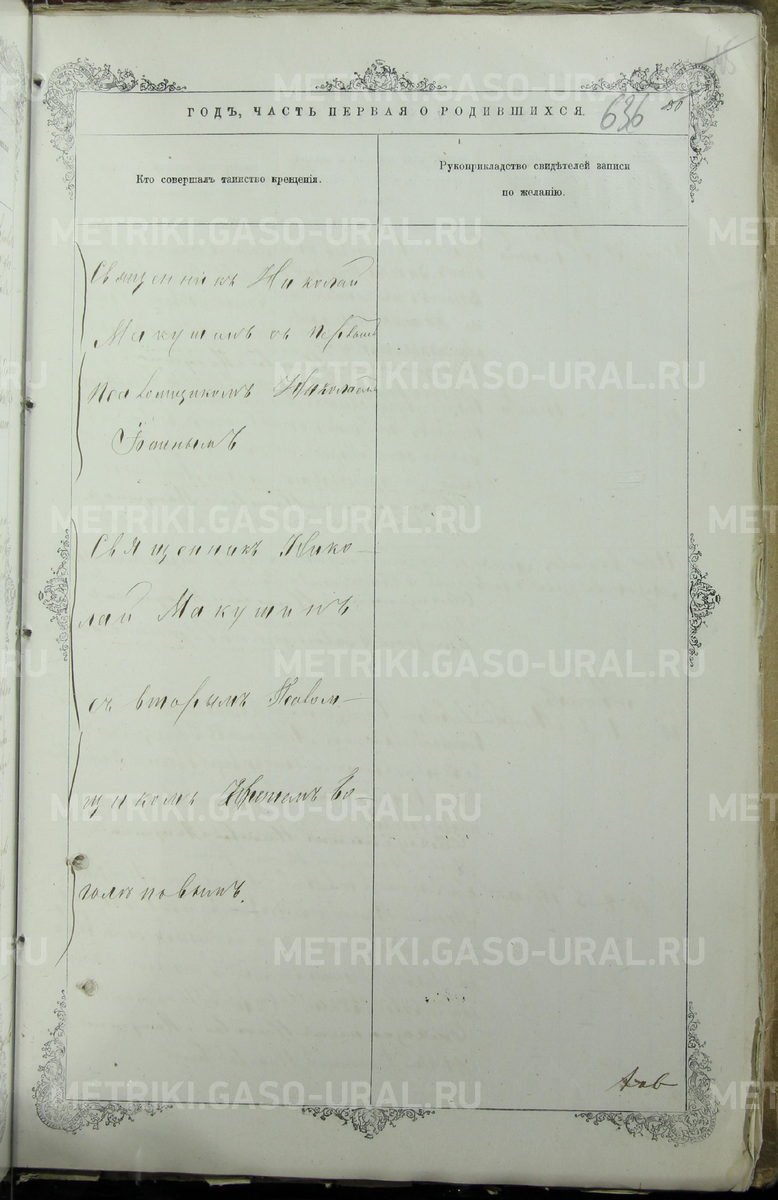 ГОДЪ, ЧАСТЬ ПЕРВАЯ О РОДИВШИХСЯ.
636
Кто совершалъ таинство крещенія.
Рукоприкладство свидѣтелей записи
по желанію.
Священникъ Николай
Макушинъ съ первымъ
Псаломщикомъ Николаемъ
Священникъ Нико-
лай Макушинъ
съ вторымъ Псалом-
щикомъ Бо-
голѣповымъ.
METRIKI.GASO-URAL.RU